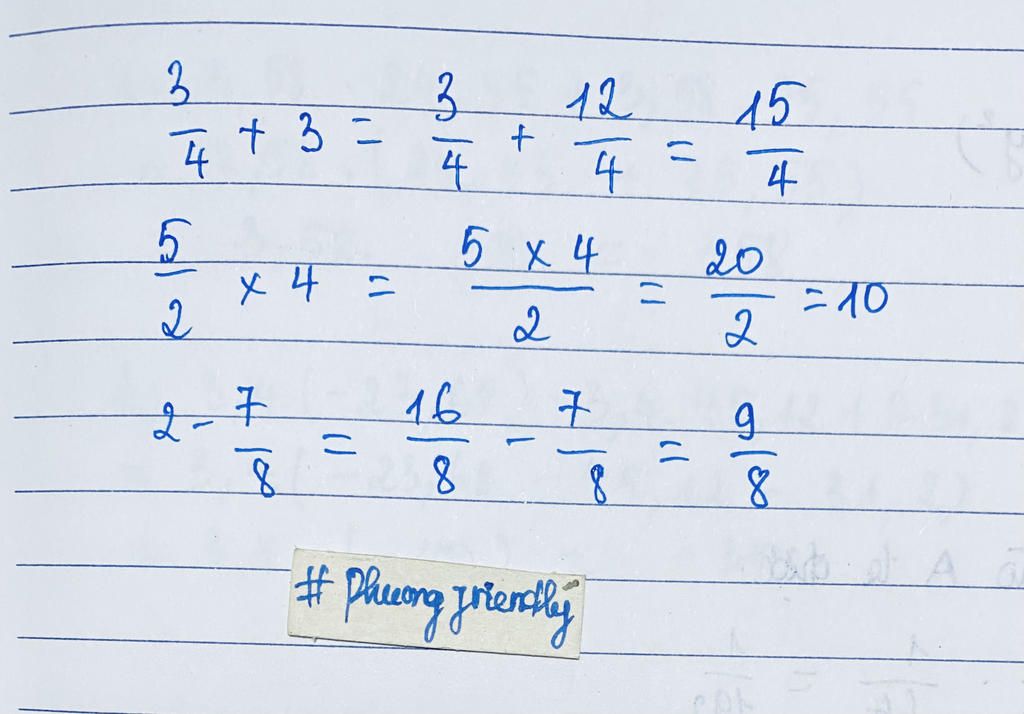 3/4 + 3 = 3/4 + 12/4 = 15/4
5/2 x 4 = 5 x 4/2 = 20/2 = 10
2 - 7/8 = 16/8 - 7/8 = 9/8
# Phuong friendly